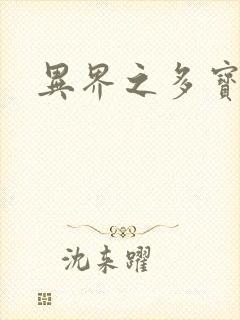 異界之多寶
沈來躍